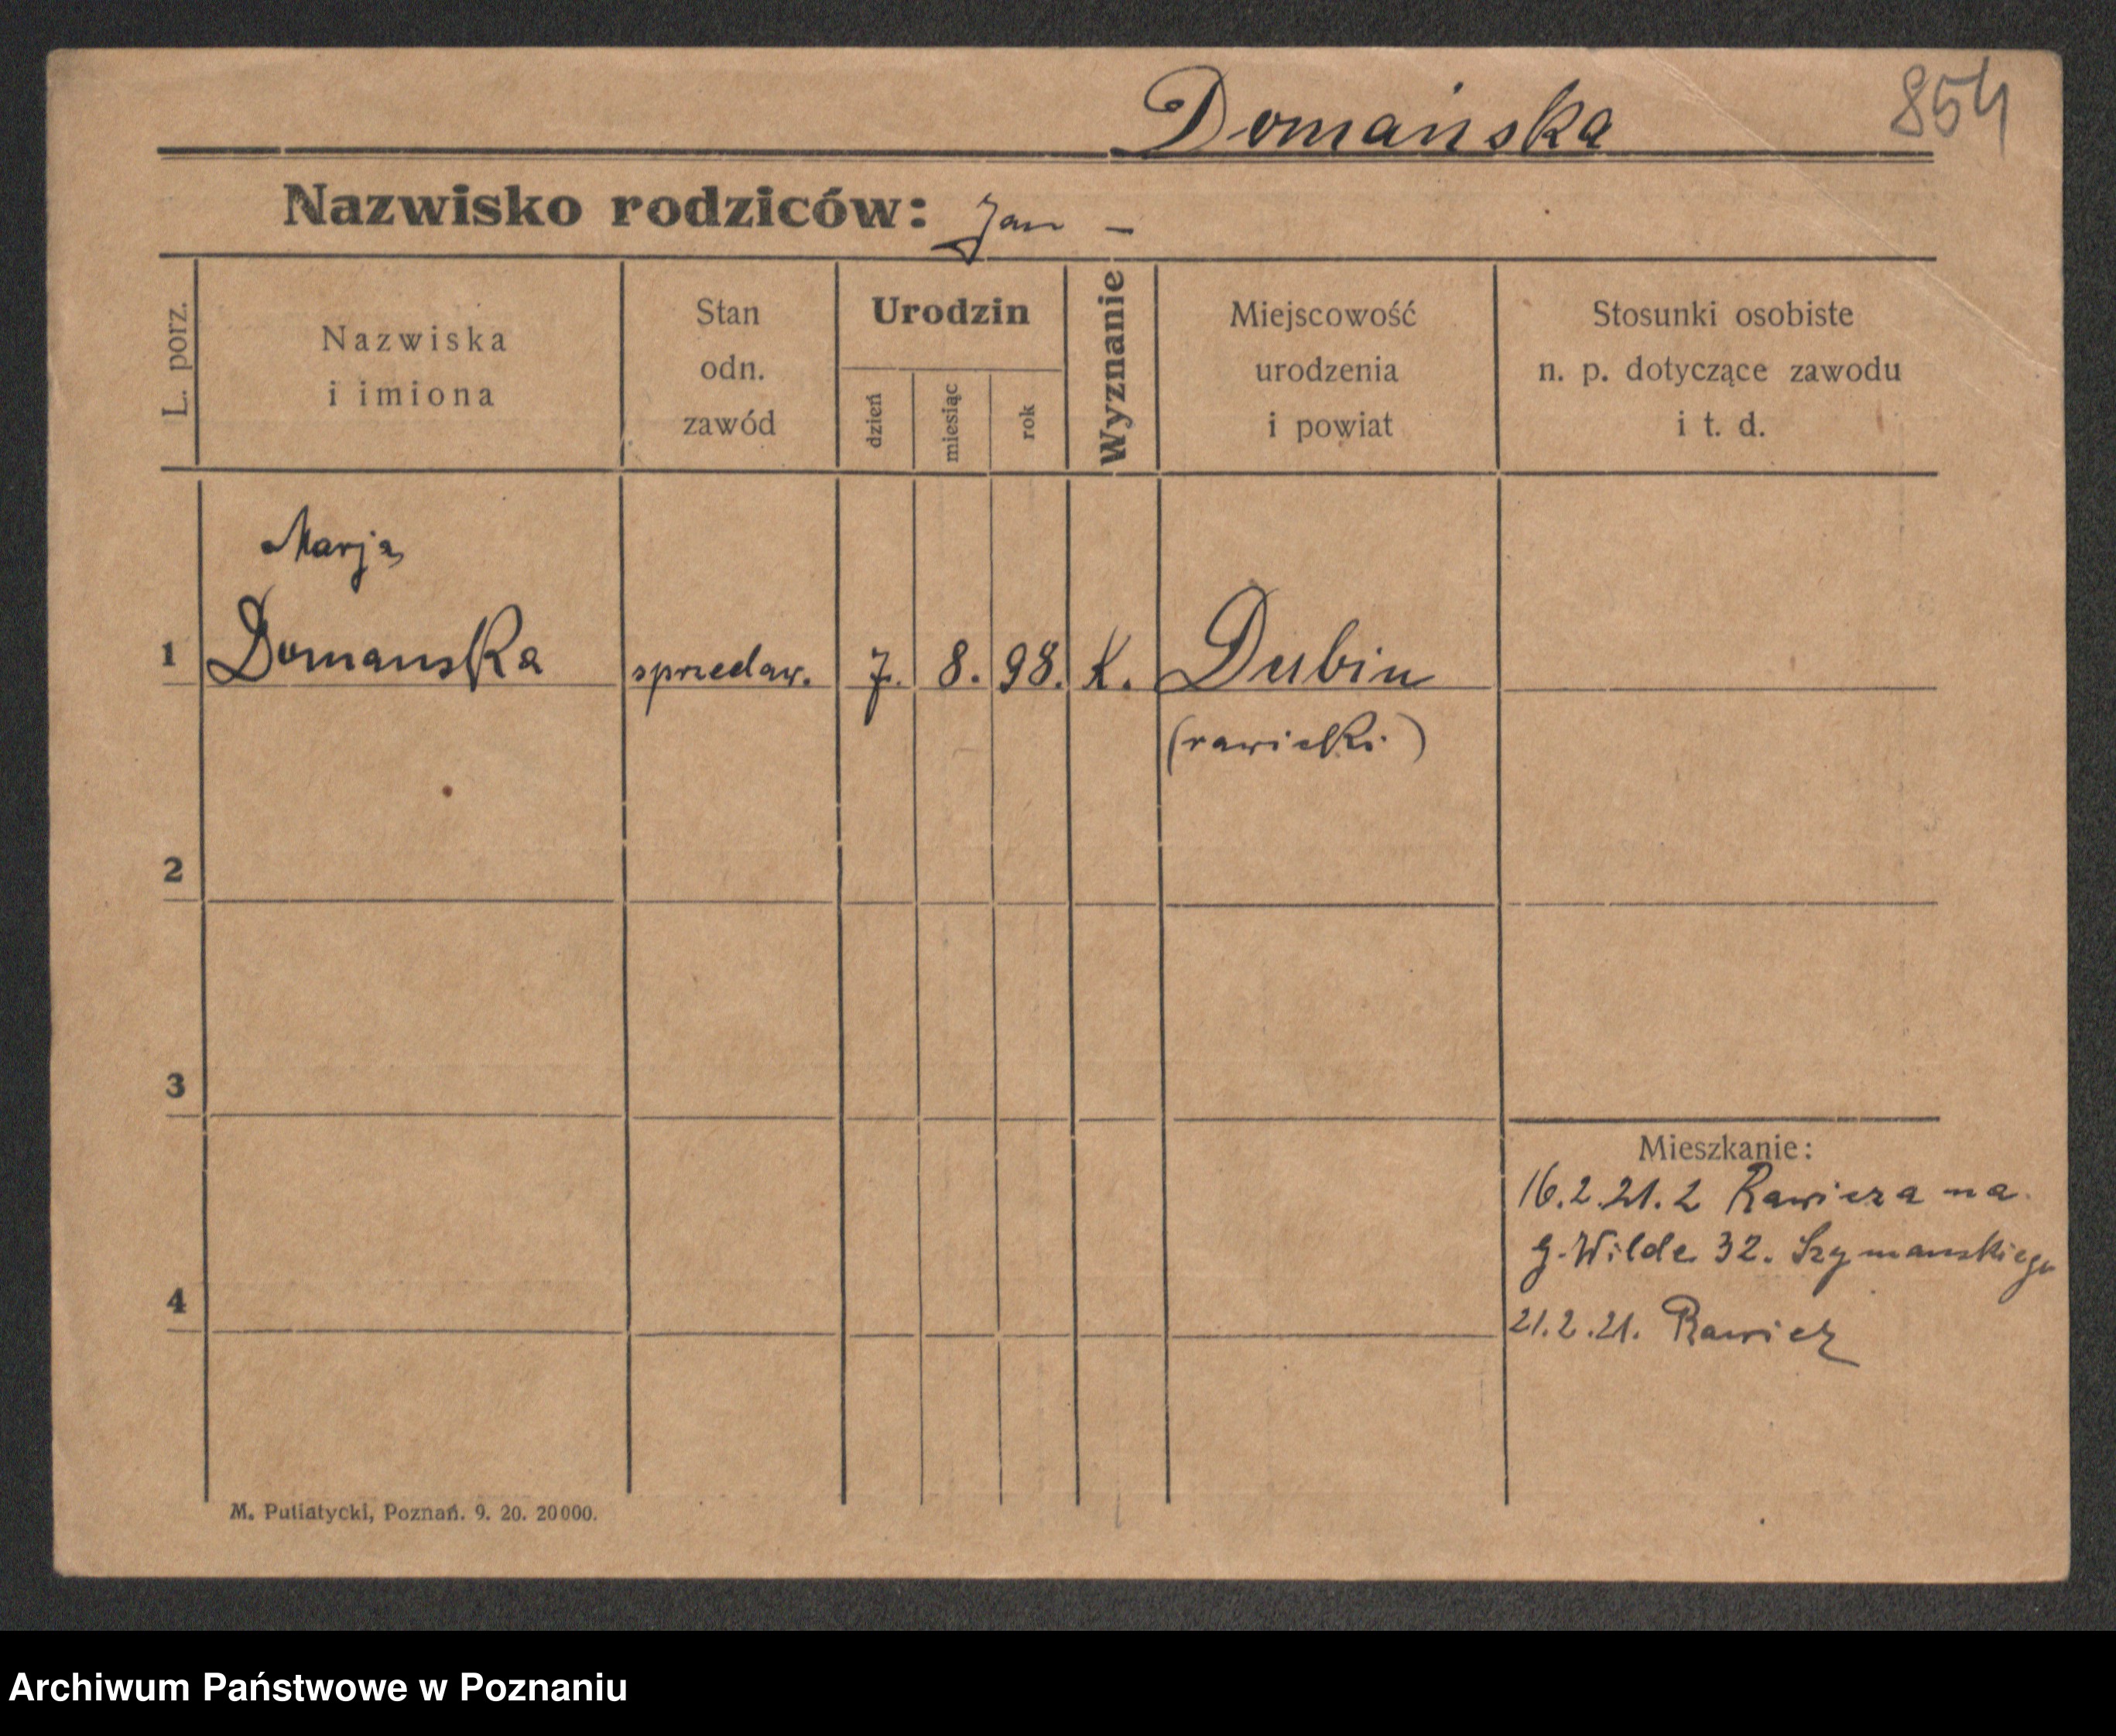 Domańska
854
Nazwisko rodziców: Jan –
L. porz.
Nazwiska
i imiona
Stan
odn.
zawód
Urodzin
dzień
miesiąc
rok
Wyznanie
Miejscowość
urodzenia
i powiat
Stosunki osobiste
n. p. dotyczące zawodu
i t. d.
Marja
1 Domanska sprzedaw. 7. 8. 98. K. Dubin
(rawicki)
2
3
Mieszkanie:
16.2.21. z Rawicza na
g. Wilde 32. Szymanskiego
4
21.2.21. Rawicz
M. Putiatycki, Poznań. 9. 20. 20000.
Archiwum Państwowe w Poznaniu